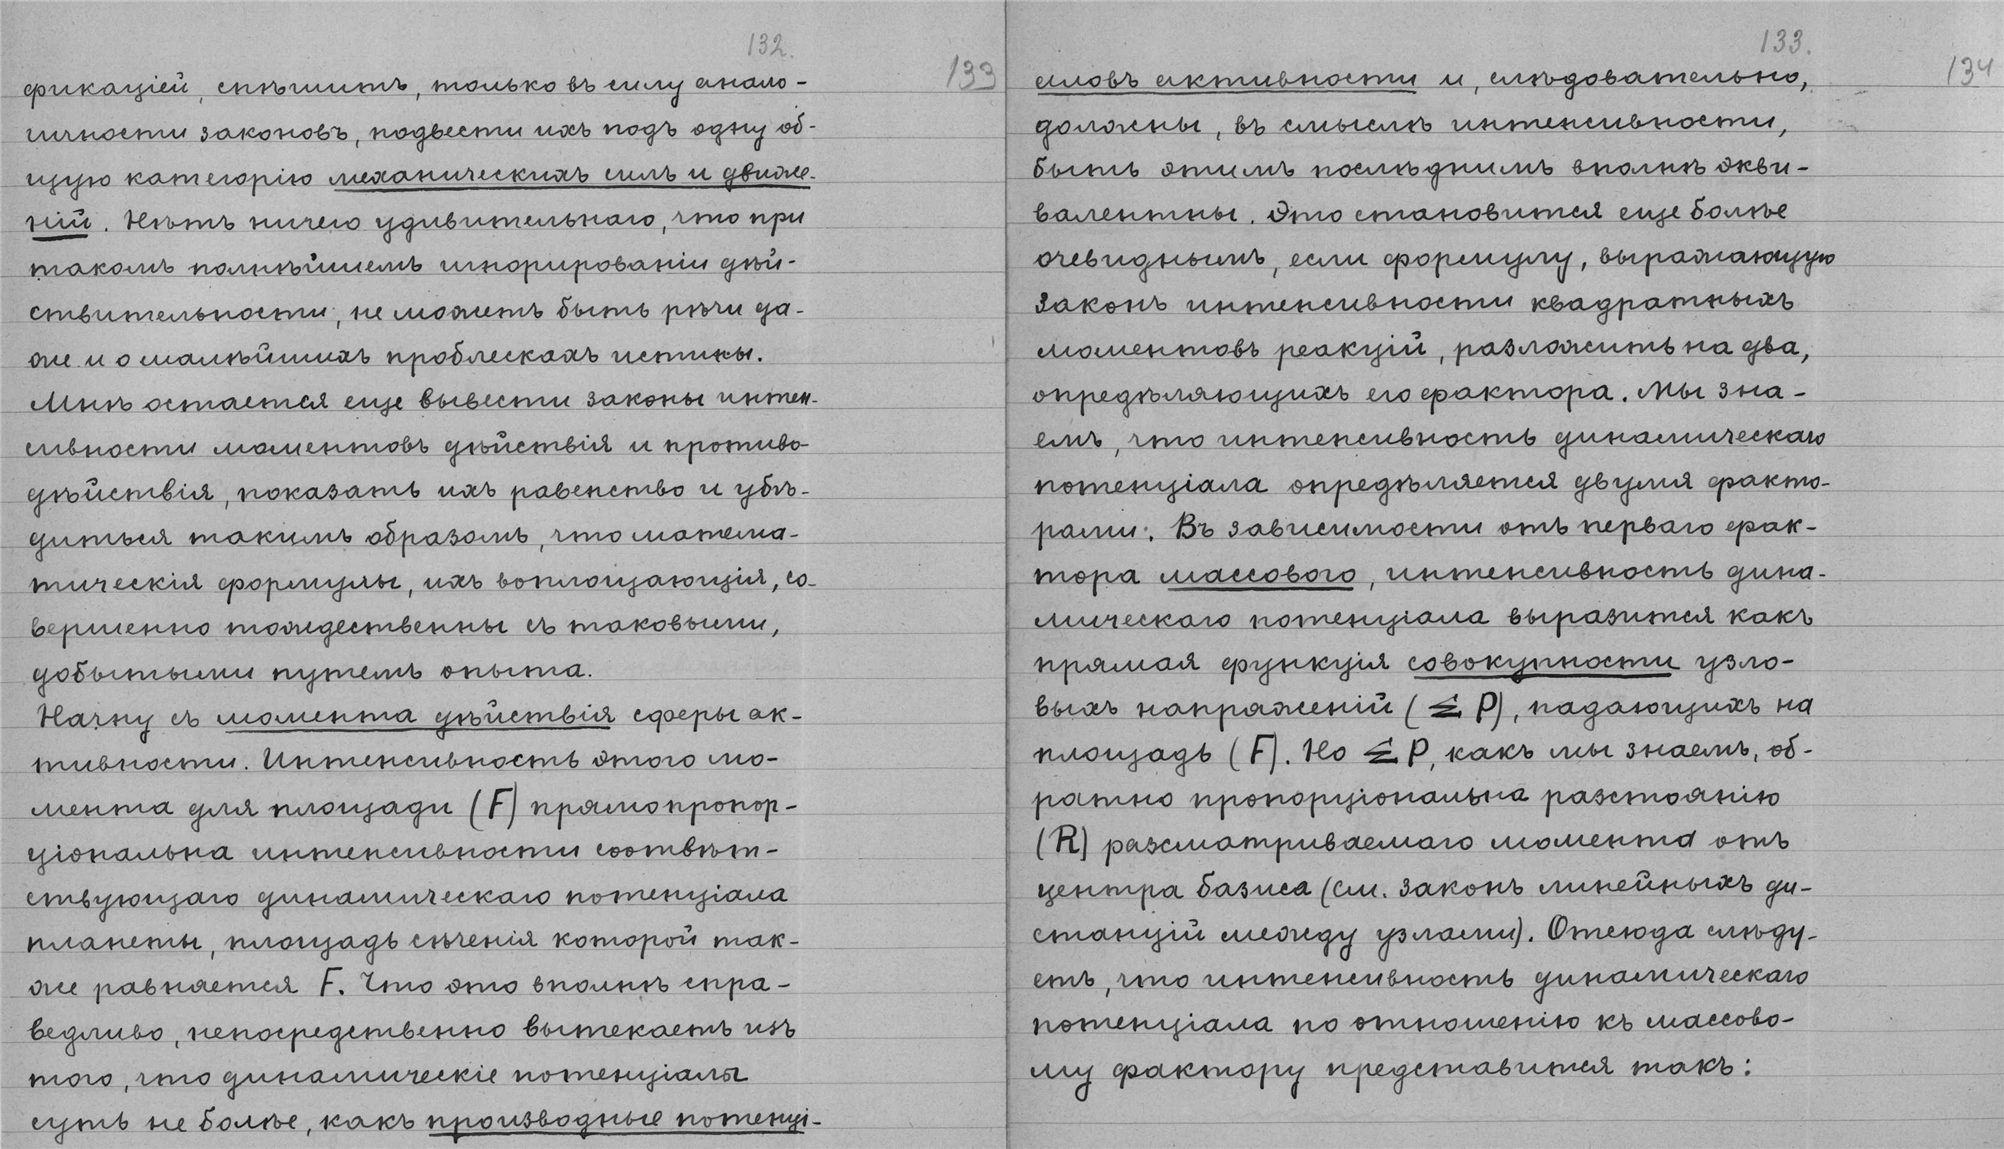 132.
133
фикаціей, спѣшитъ, только въ силу анало-
гичности законовъ, подвести ихъ подъ одну об-
щую категорію механическихъ силъ и движе-
ній. Нѣтъ ничего удивительнаго, что при
такомъ полнѣйшемъ игнорированіи дѣй-
ствительности, не можетъ быть рѣчи да-
же и о малѣйшихъ проблескахъ истины.
Мнѣ остается еще вывести законы интен-
сивности моментовъ дѣйствія и противо-
дѣйствія, показать ихъ равенство и убѣ-
диться такимъ образомъ, что матема-
тическія формулы, ихъ воплощающія, со-
вершенно тождественны съ таковыми,
добытыми путемъ опыта.
Начну съ момента дѣйствія сферы ак-
тивности. Интенсивность этого мо-
мента для площади (F) прямо пропор-
ціональна интенсивности соотвѣт-
ствующаго динамическаго потенціала
планеты, площадь сѣченія которой так-
же равняется F. Что это вполнѣ спра-
ведливо, непосредственно вытекаетъ изъ
того, что динамическіе потенціалы
суть не болѣе, какъ производные потенці-
133.
134
аловъ активности и, слѣдовательно,
должны, въ смыслѣ интенсивности,
быть этимъ послѣднимъ вполнѣ экви-
валентны. Это становится еще болѣе
очевиднымъ, если формулу, выражающую
законъ интенсивности квадратныхъ
моментовъ реакцій, разложить на два,
опредѣляющихъ его фактора. Мы зна-
емъ, что интенсивность динамическаго
потенціала опредѣляется двумя факто-
рами. Въ зависимости отъ перваго фак-
тора массового, интенсивность дина-
мическаго потенціала выразится какъ
прямая функція совокупности узло-
выхъ напряженій (Σ P), падающихъ на
площадь (F). Но Σ P, какъ мы знаемъ, об-
ратно пропорціональна разстоянію
(R) разсматриваемаго момента отъ
центра базиса (см. законъ линейныхъ ди-
станцій между узлами). Отсюда слѣду-
етъ, что интенсивность динамическаго
потенціала по отношенію къ массово-
му фактору представится такъ: